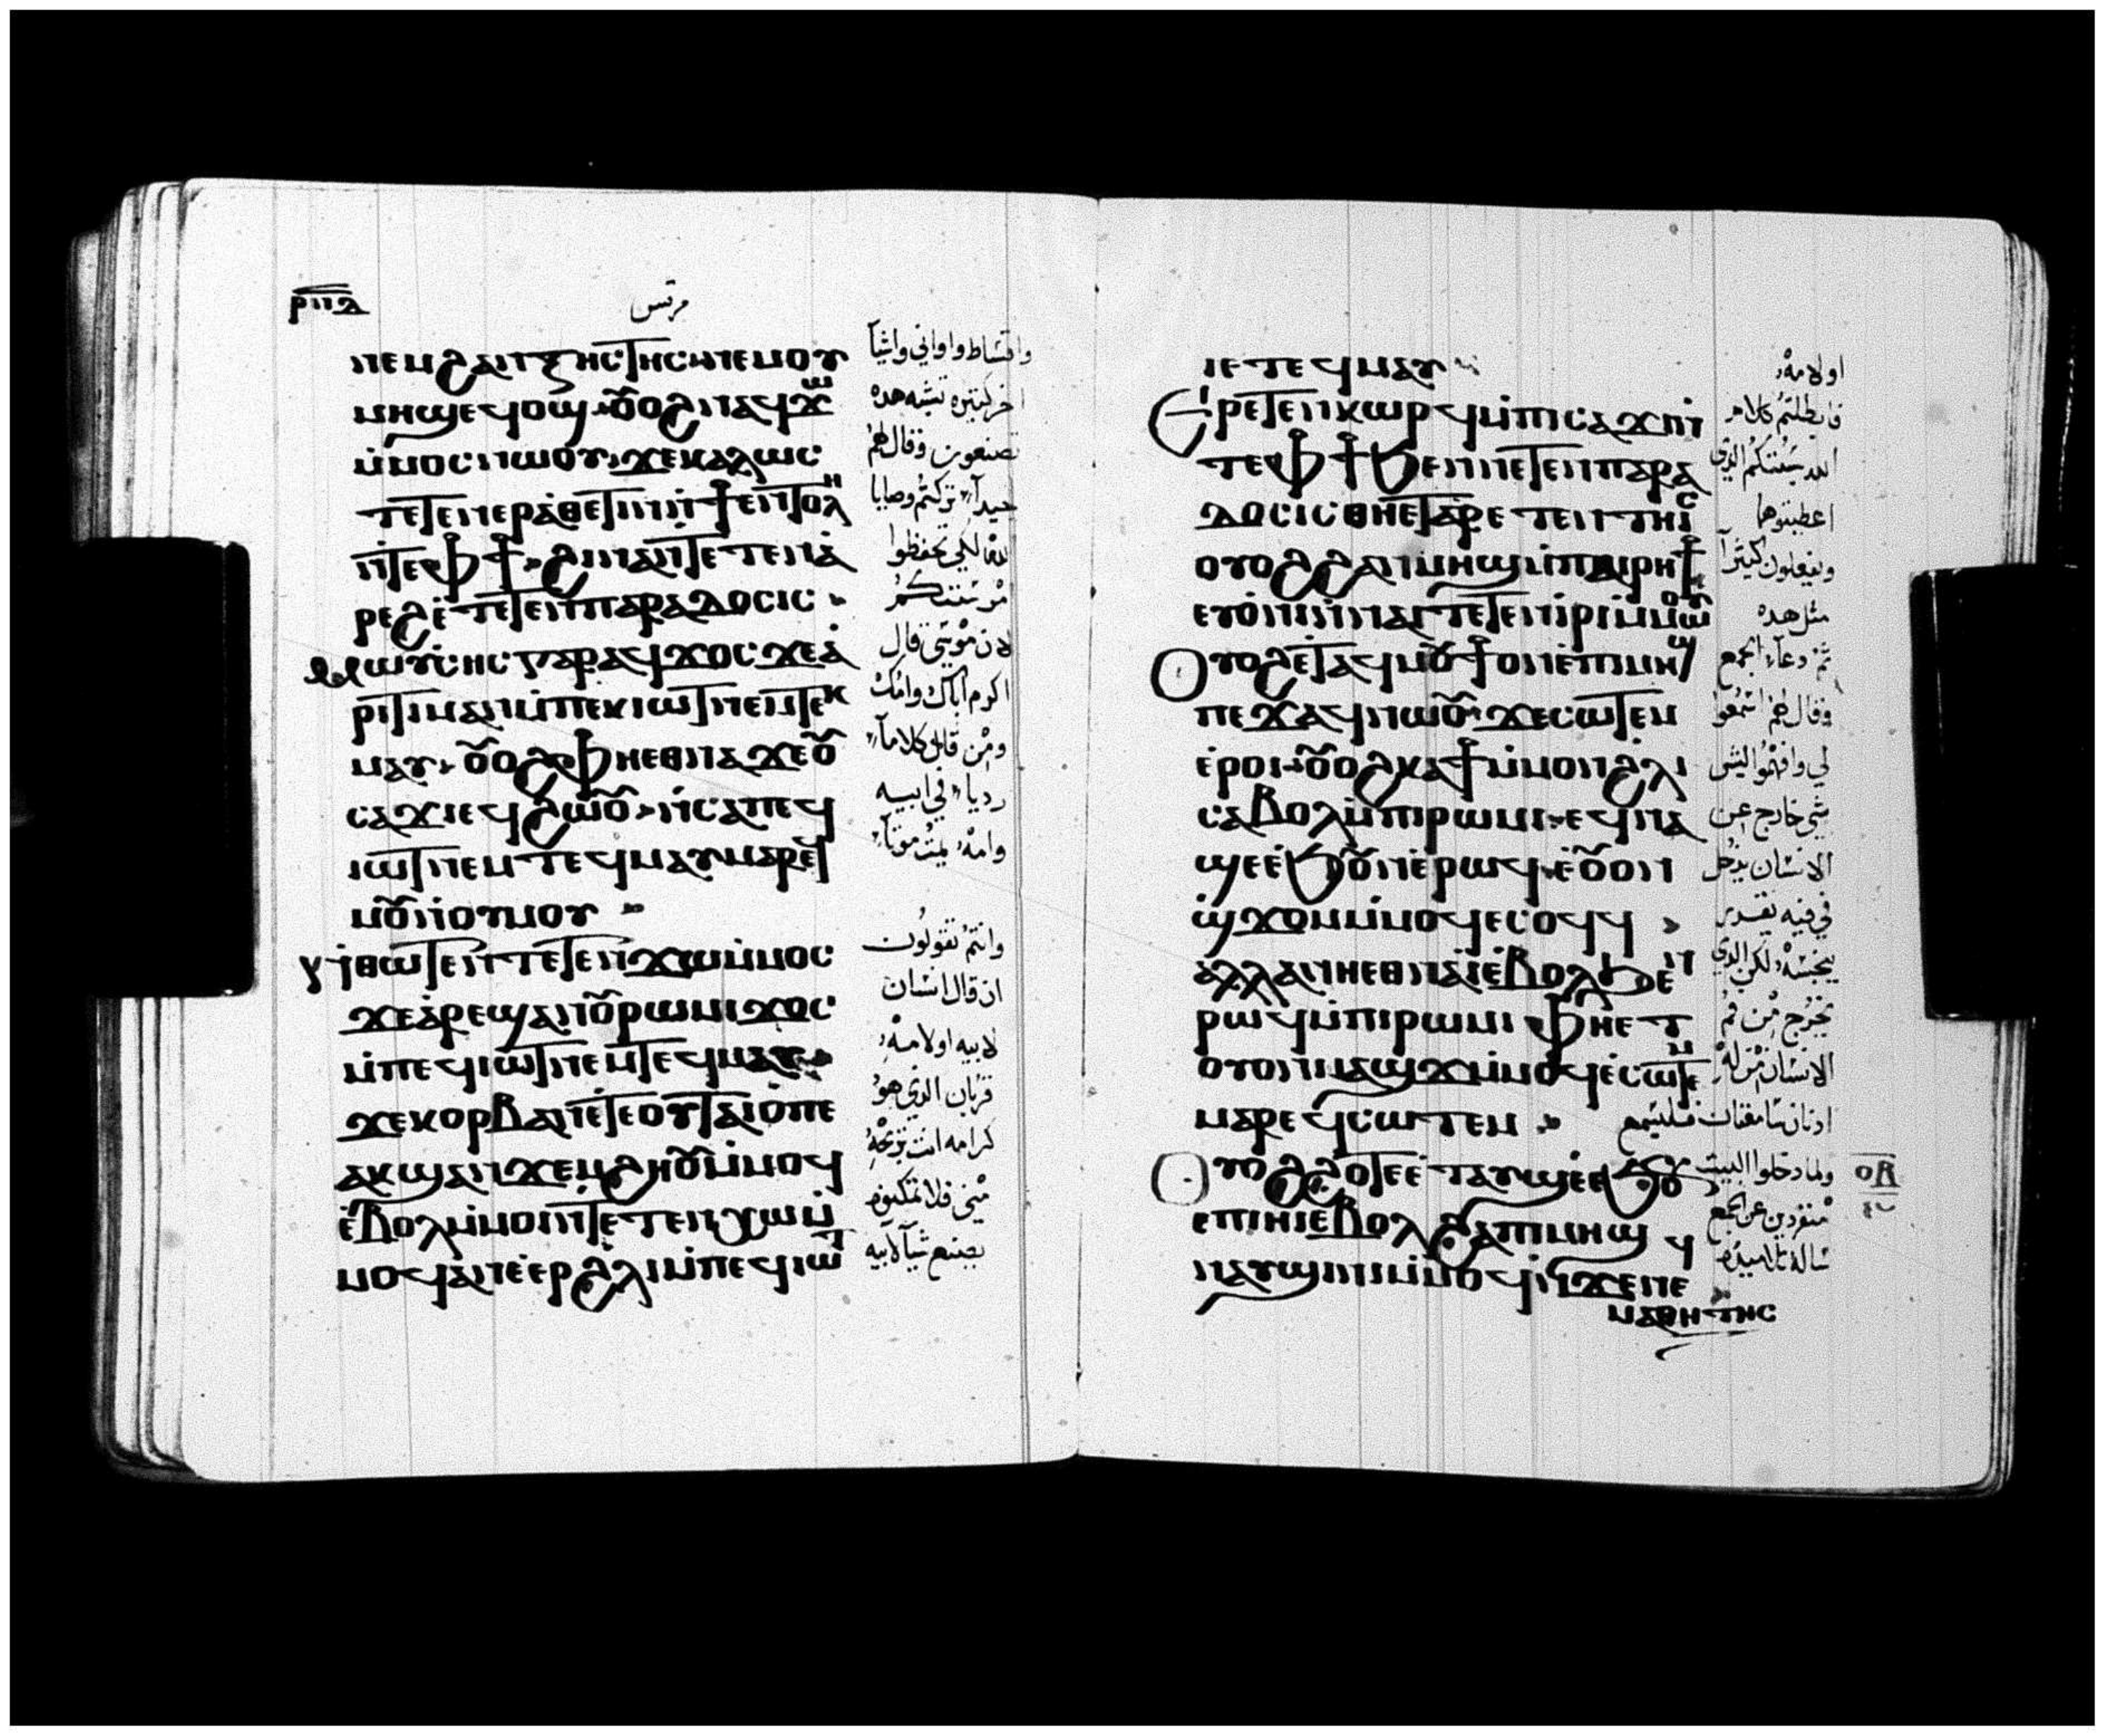 ⲣⲡⲇ
مرقس
ⲛⲉⲙϩⲁⲛⲝⲏⲥⲧⲏⲥⲛⲉⲙⲟⲩ
ⲙⲏϣⲉϥⲟϣ ⲟⲩⲟϩⲛⲁϥϫⲱ
ⲙ̀ⲙⲟⲥⲛⲱⲟⲩ ϫⲉⲕⲁⲗⲱⲥ
ⲧⲉⲧⲉⲛⲉⲣⲁ̀ⲑⲉⲧⲓⲛⲛ̀ϯⲉⲛⲧⲟⲗⲏ
ⲛ̀ⲧⲉⲫϯ ϩⲓⲛⲁⲛ̀ⲧⲉⲧⲉⲛⲁ̀
ⲣⲉϩⲉ̀ⲧⲉⲧⲉⲛⲡⲁⲣⲁⲇⲟⲥⲓⲥ
ⲙⲱⲩ̀ⲥⲏⲥⲅⲁⲣⲁϥϫⲟⲥϫⲉⲁ̀
ⲣⲓⲧⲓⲙⲁⲛⲙ̀ⲡⲉⲕⲓⲱⲧⲛⲉⲙⲧⲉⲕ
ⲙⲁⲩ ⲟⲩⲟϩⲫⲏⲉⲑⲛⲁϫⲉⲟⲩ
ⲥⲁϫⲓⲉϥϩⲱⲟⲩ ⲛ̀ⲥⲁⲡⲉϥ
ⲓⲱⲧⲛⲉⲙⲧⲉϥⲙⲁⲩⲙⲁⲣⲉϥ
ⲙⲟⲩϧⲉⲛⲟⲩⲙⲟⲩ
ⲛ̀ⲑⲱⲧⲉⲛⲧⲉⲧⲉⲛϫⲱⲙ̀ⲙⲟⲥ
ϫⲉⲁ̀ⲣⲉϣⲁⲛⲟⲩⲣⲱⲙⲓϫⲟⲥ
ⲙ̀ⲡⲉϥⲓⲱⲧⲛⲉⲙⲧⲉϥⲙⲁⲩ
ϫⲉⲕⲟⲣⲃⲁⲛⲉ̀ⲧⲉⲟⲩⲧⲁⲓⲟⲡⲉ
ⲁⲕϣⲁⲛϫⲉⲙϩⲏⲟⲩⲙ̀ⲙⲟϥ
ⲉ̀ⲃⲟⲗⲙ̀ⲙⲟⲓⲛ̀ⲧⲉⲧⲉⲛⲭⲱⲙ̀
ⲙⲟϥⲁⲛⲉ̀ⲉⲣϩⲗⲓⲙ̀ⲡⲉϥⲓⲱⲧ
واقساط واواني واشيا
اخر كثيره تشبه هده
تصنعون وقال لهم
جيدآ تركتم وصايا
الله لكي تحفظوا
من سنتكم
لان موسى قال
اكرم اباك وامك
ومن قال كلامآ
رديا في ابيه
وامه يمت موتآ
وانتم تقولون
ان قال انسان
لابيه او لامه
قربان الدي هو
كرامه انت تربحه
مني فلا تمكنوه
يصنع شيآ لابيه
ⲓⲉⲧⲉϥⲙⲁⲩ
ⲉ̀ⲣⲉⲧⲉⲛⲕⲱⲣϥⲙ̀ⲡⲓⲥⲁϫⲓⲛ̀
ⲧⲉⲫϯϧⲉⲛⲛⲉⲧⲉⲛⲡⲁⲣⲁ
ⲇⲟⲥⲓⲥⲑⲏⲉⲧⲁⲣⲉⲧⲉⲛⲧⲏⲓⲥ
ⲟⲩⲟϩϩⲁⲛⲙⲏϣⲙ̀ⲡⲁⲓⲣⲏϯ
ⲉⲩⲟ̀ⲛⲓⲛ̀ⲛⲁⲓⲧⲉⲧⲉⲛⲓ̀ⲣⲓⲙ̀ⲙⲱⲟⲩ
ⲟⲩⲟϩⲉ̀ⲧⲁϥⲙⲟⲩϯⲟⲛⲉ̀ⲡⲓⲙⲏϣ
ⲡⲉϫⲁϥⲛⲱⲟⲩ ϫⲉⲥⲱⲧⲉⲙ
ⲉ̀ⲣⲟⲓ ⲟⲩⲟϩⲕⲁϯⲙ̀ⲙⲟⲛϩⲗⲓ
ⲥⲁⲃⲟⲗⲙ̀ⲡⲓⲣⲱⲙⲓ ⲉϥⲛⲁ
ϣⲉⲉ̀ϧⲟⲩⲛⲉ̀ⲣⲱϥ ⲉ̀ⲟⲩⲟⲛ
ϣϫⲟⲙⲙ̀ⲙⲟϥⲉⲥⲟϥϥ
ⲁⲗⲗⲁⲛⲏⲉⲑⲛⲁⲓ̀ⲉ̀ⲃⲟⲗϧⲉⲛ
ⲣⲱϥⲙ̀ⲡⲓⲣⲱⲙⲓ ⲫⲏⲉⲧ
ⲟⲩⲟⲛⲙⲁϣϫⲙ̀ⲙⲟϥⲉ̀ⲥⲱⲧⲉⲙ
ⲙⲁⲣⲉϥⲥⲱⲧⲉⲙ
ⲟⲩⲟϩϩⲟⲧⲉⲉ̀ⲧⲁⲩϣⲉⲉ̀ϧⲟⲩ
ⲉⲡⲓⲏⲓⲉ̀ⲃⲟⲗϩⲁⲡⲓⲙⲏϣ
ⲛⲁⲩϣⲓⲛⲓⲙ̀ⲙⲟϥⲛ̀ϫⲉⲛⲉϥ
ⲙⲁⲑⲏⲧⲏⲥ
او لامه
فابطلتم كلام
الله بسنتكم الدي
اعطيتوها
وتفعلون كثيرآ
مثل هده
ثم دعا الجمع
وقال لهم اسمعوا
لي وافهموا ليس
شي خارج عن
الانسان يدخل
في فيه يقدر
ينجسه لكن الدي
يخرج من فم
الانسان من له
ادنان سامعتان فليسمع
ولما دخلوا البيت
منفردين عن الجمع
ساله تلاميده
ⲟⲃ